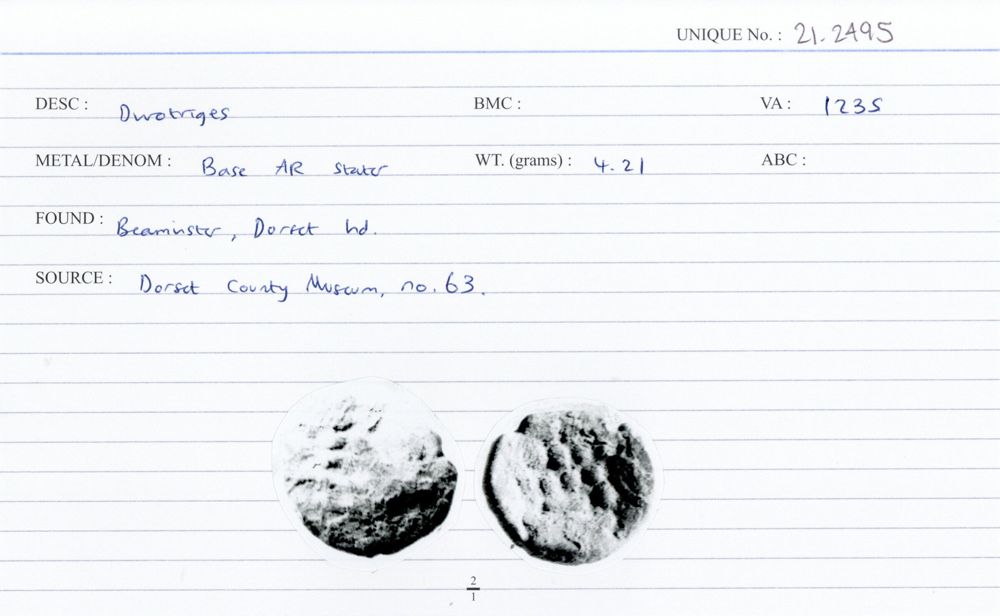 UNIQUE No. : 21.2495
DESC : Durotriges BMC : VA : 1235
METAL/DENOM : Base AR stater WT. (grams) : 4.21 ABC :
FOUND : Beaminster, Dorset hd.
SOURCE : Dorset County Museum, no. 63.
2
1